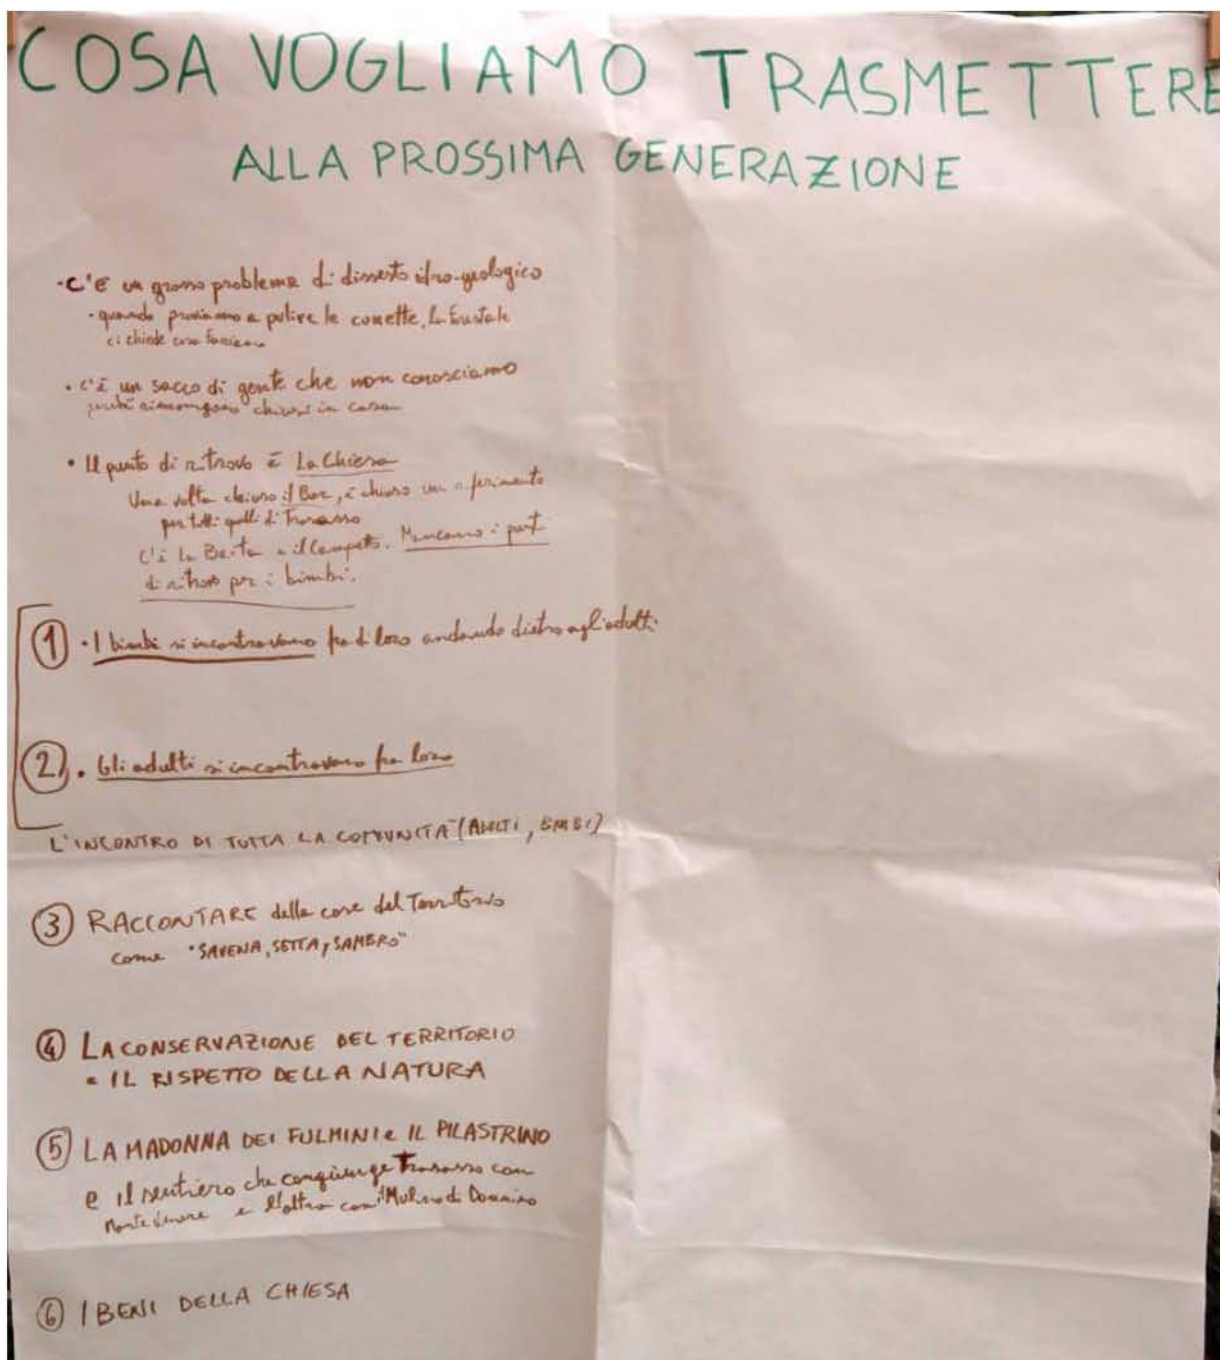 COSA VOGLIAMO TRASMETTERE
ALLA PROSSIMA GENERAZIONE
· C'È un grosso problema di dissesto idro-geologico
· quando proviamo a pulire le cunette, la forestale
ci chiede cosa facciamo
· c'è un sacco di gente che non conosciamo
perché rimangono chiusi in casa
· Il punto di ritrovo è La Chiesa
Una volta chiuso il Bar, è chiuso un riferimento
per tutti quelli di Trasasso
C'è la e il Campetto. Mancano i punti
di ritrovo per i bimbi.
1 · I bimbi si incontravano fra di loro andando dietro agli adulti
2 · Gli adulti si incontravano fra loro
L'INCONTRO DI TUTTA LA COMUNITÀ (ADULTI, BIMBI)
3 RACCONTARE delle cose del Territorio
come "SAVENA, SETTA, SAMBRO"
4 LA CONSERVAZIONE DEL TERRITORIO
· IL RISPETTO DELLA NATURA
5 LA MADONNA DEI FULMINI e IL PILASTRINO
e il sentiero che congiunge Trasasso con
Monte Venere e l'altro con il Mulino di Donnino
6 I BENI DELLA CHIESA